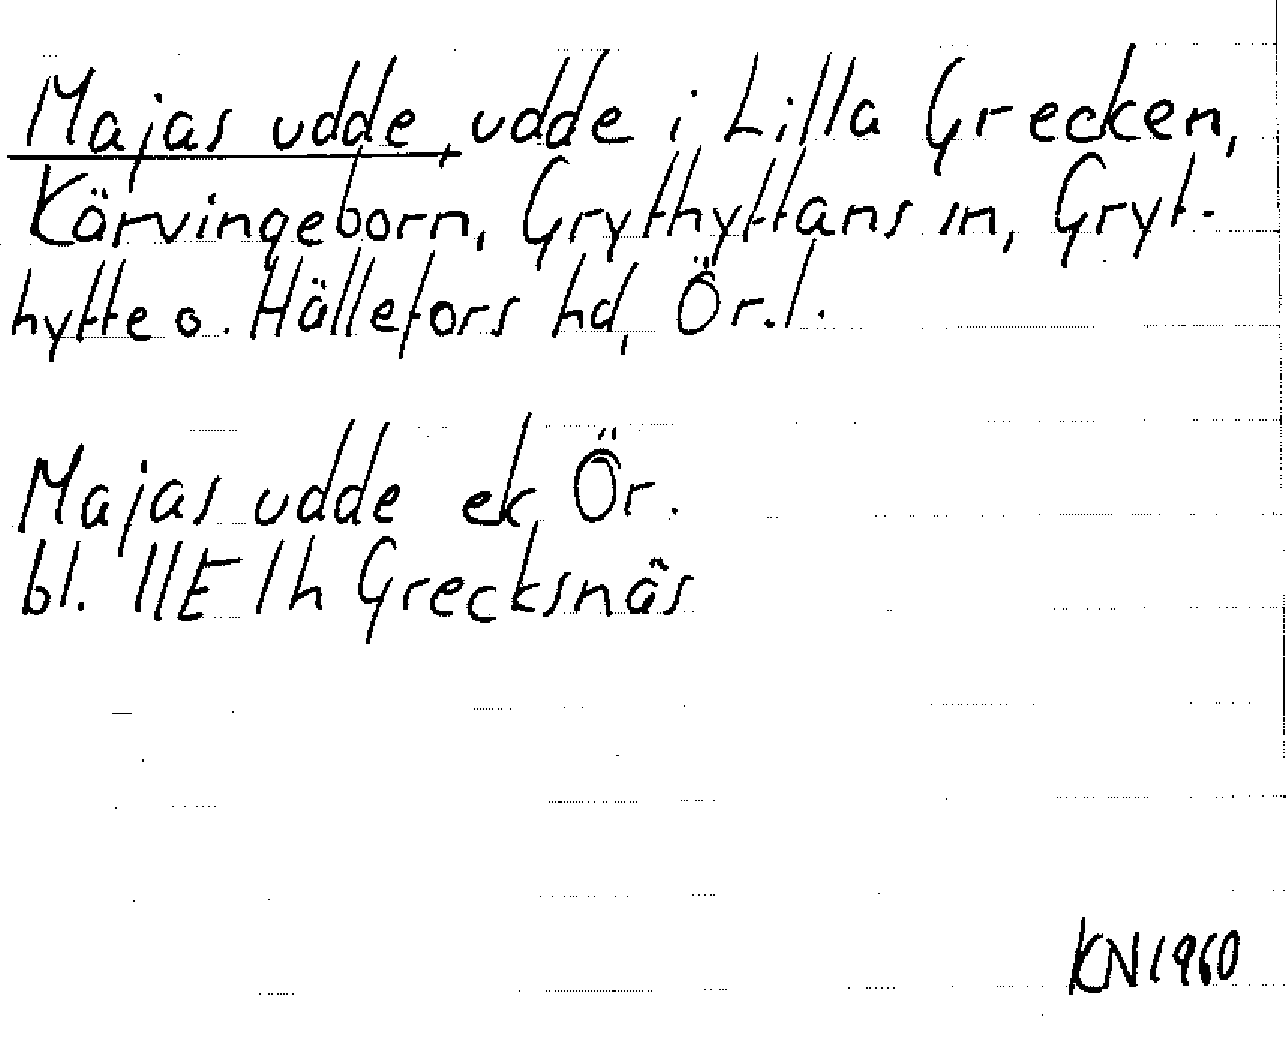 Majas udde, udde i Lilla Grecken,
Kärvingeborn, Grythyttans sn, Gryt-
hytte o. Hällefors hd, Ör. l.
Majas udde ek Ör.
bl. 11E 1h Grecksnäs
KN 1960